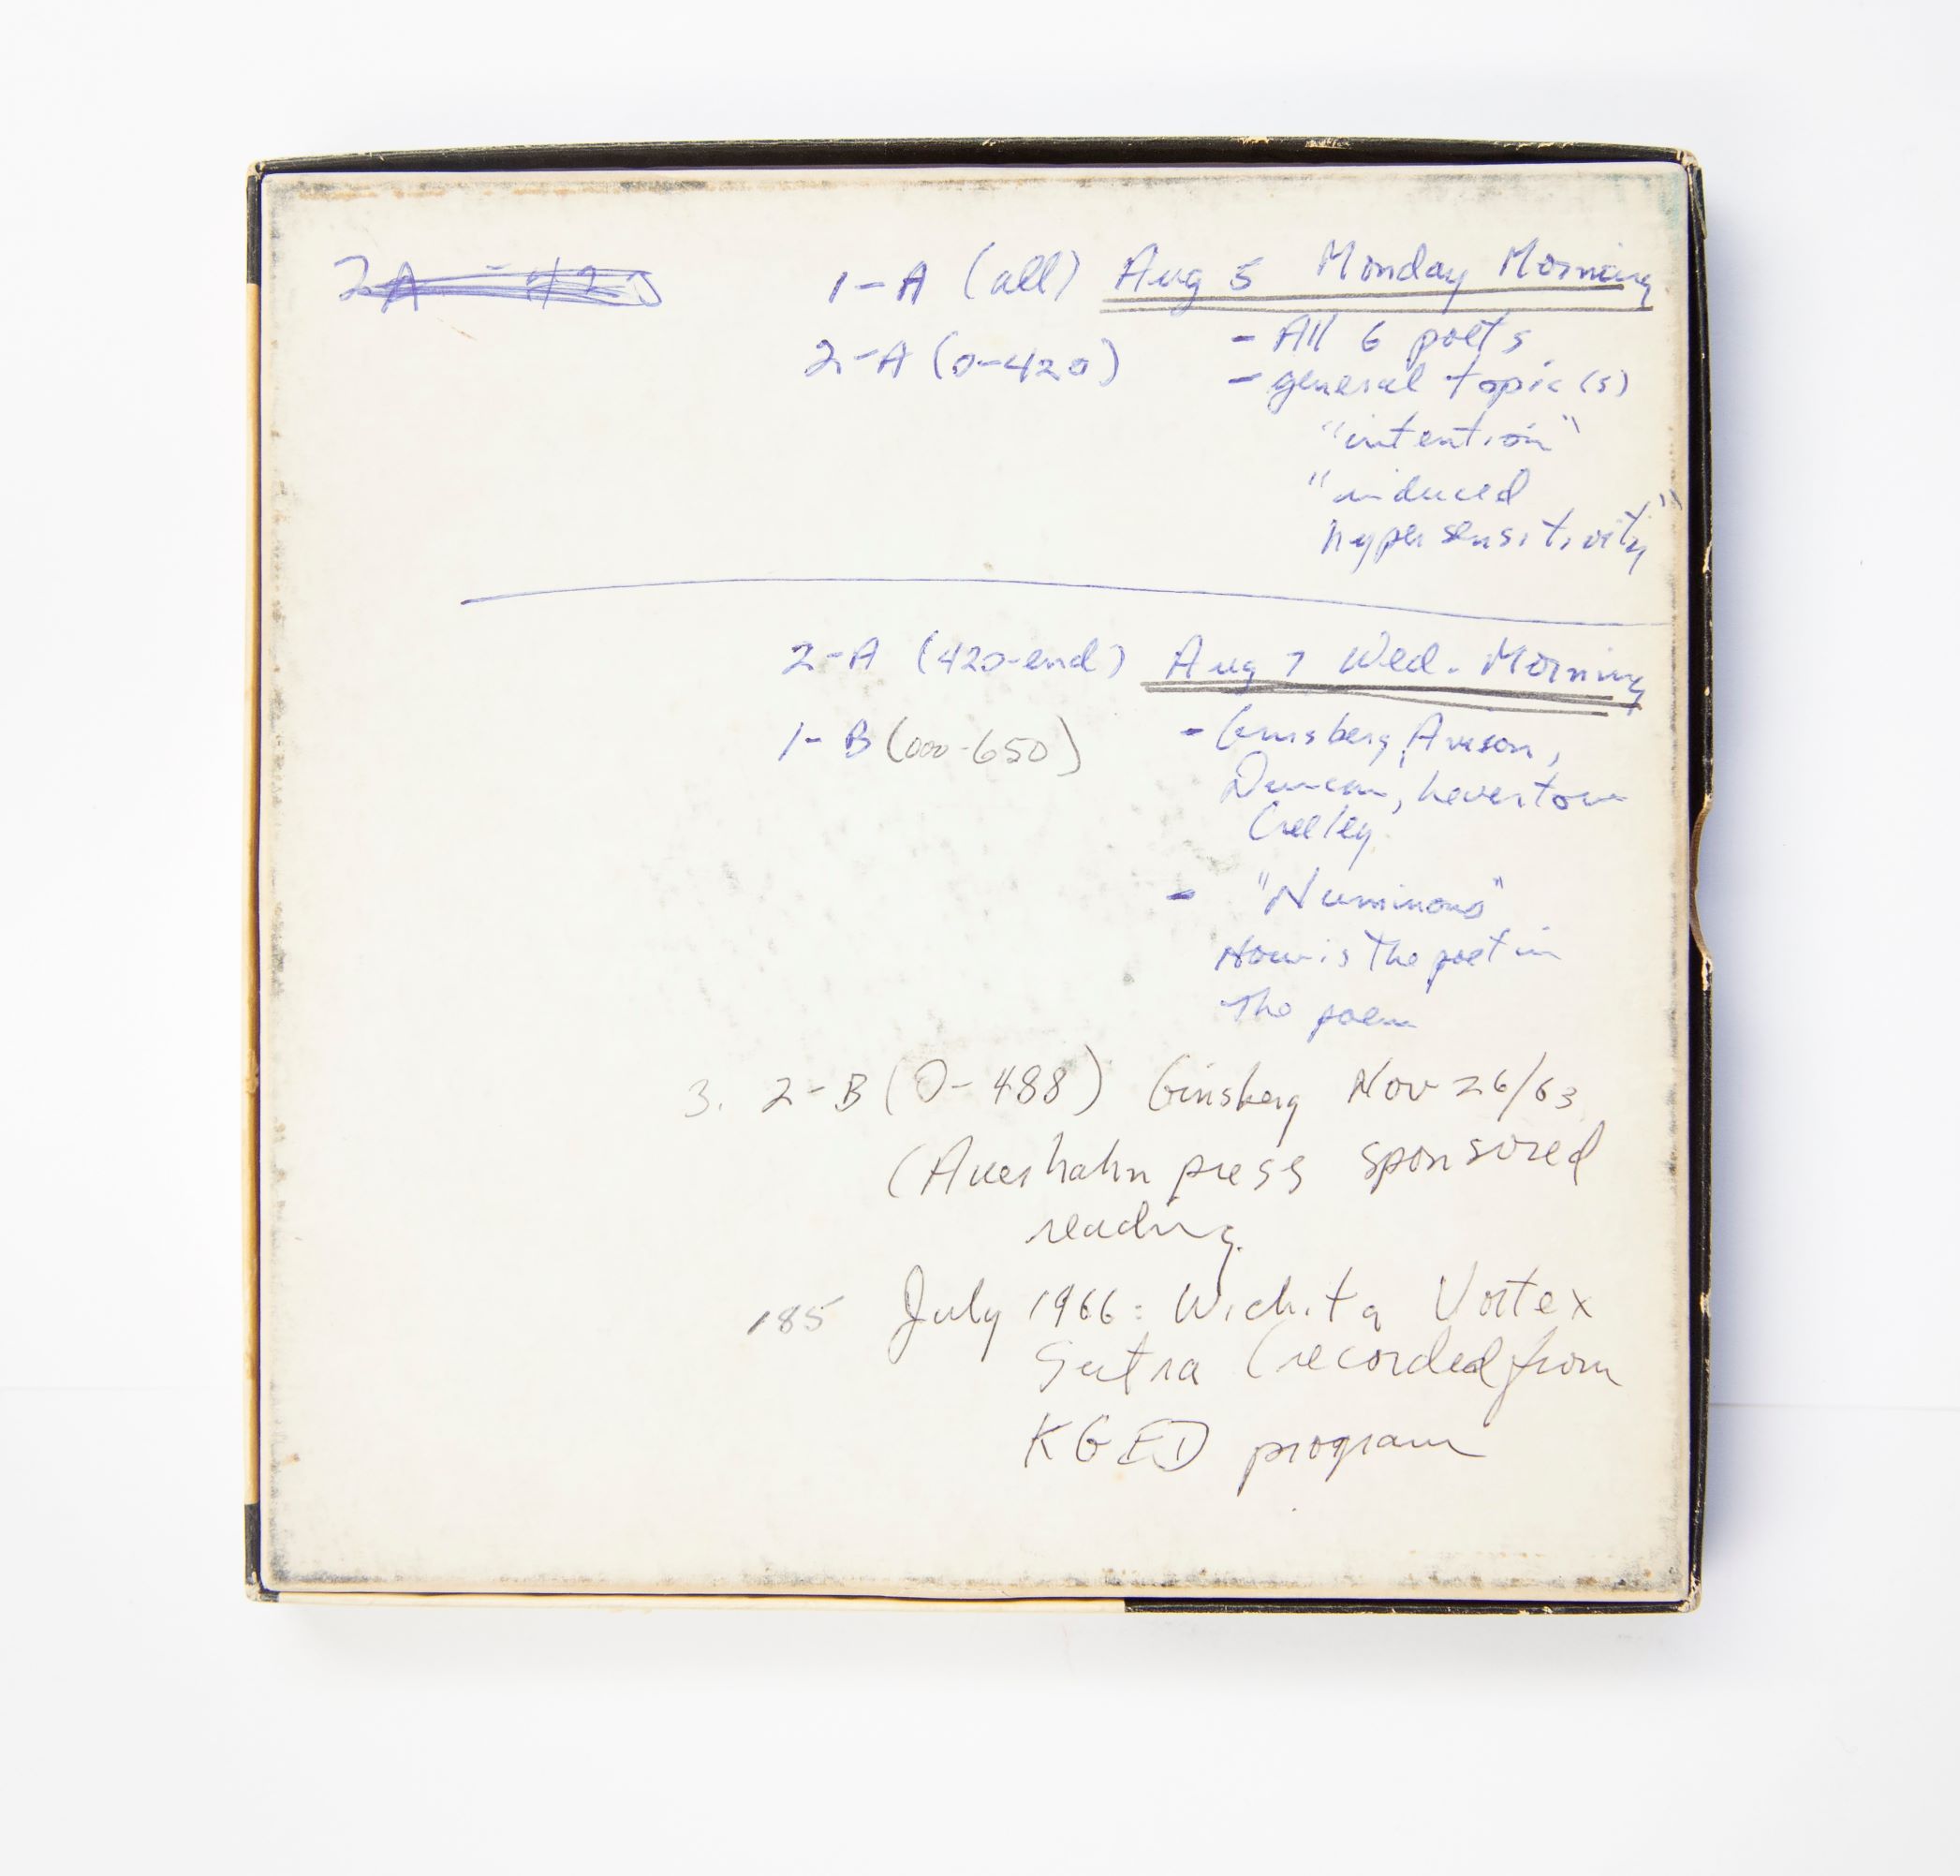 2A - 420
1-A (all) Aug 5 Monday Morning
2-A (0-420) - All 6 poets
- general topic(s)
"intention"
"induced
hypersensitivity"
2-A (420-end) Aug 7 Wed. Morning
1-B (000-650) - Ginsberg, Avison,
Duncan, Levertov
Creeley
- "Numinous"
How is the poet in
the poem
3. 2-B (0-488) Ginsberg Nov 26/63
(Auerhahn press sponsored
reading.
185 July 1966: Wichita Vortex
Sutra (recorded from
KGED program